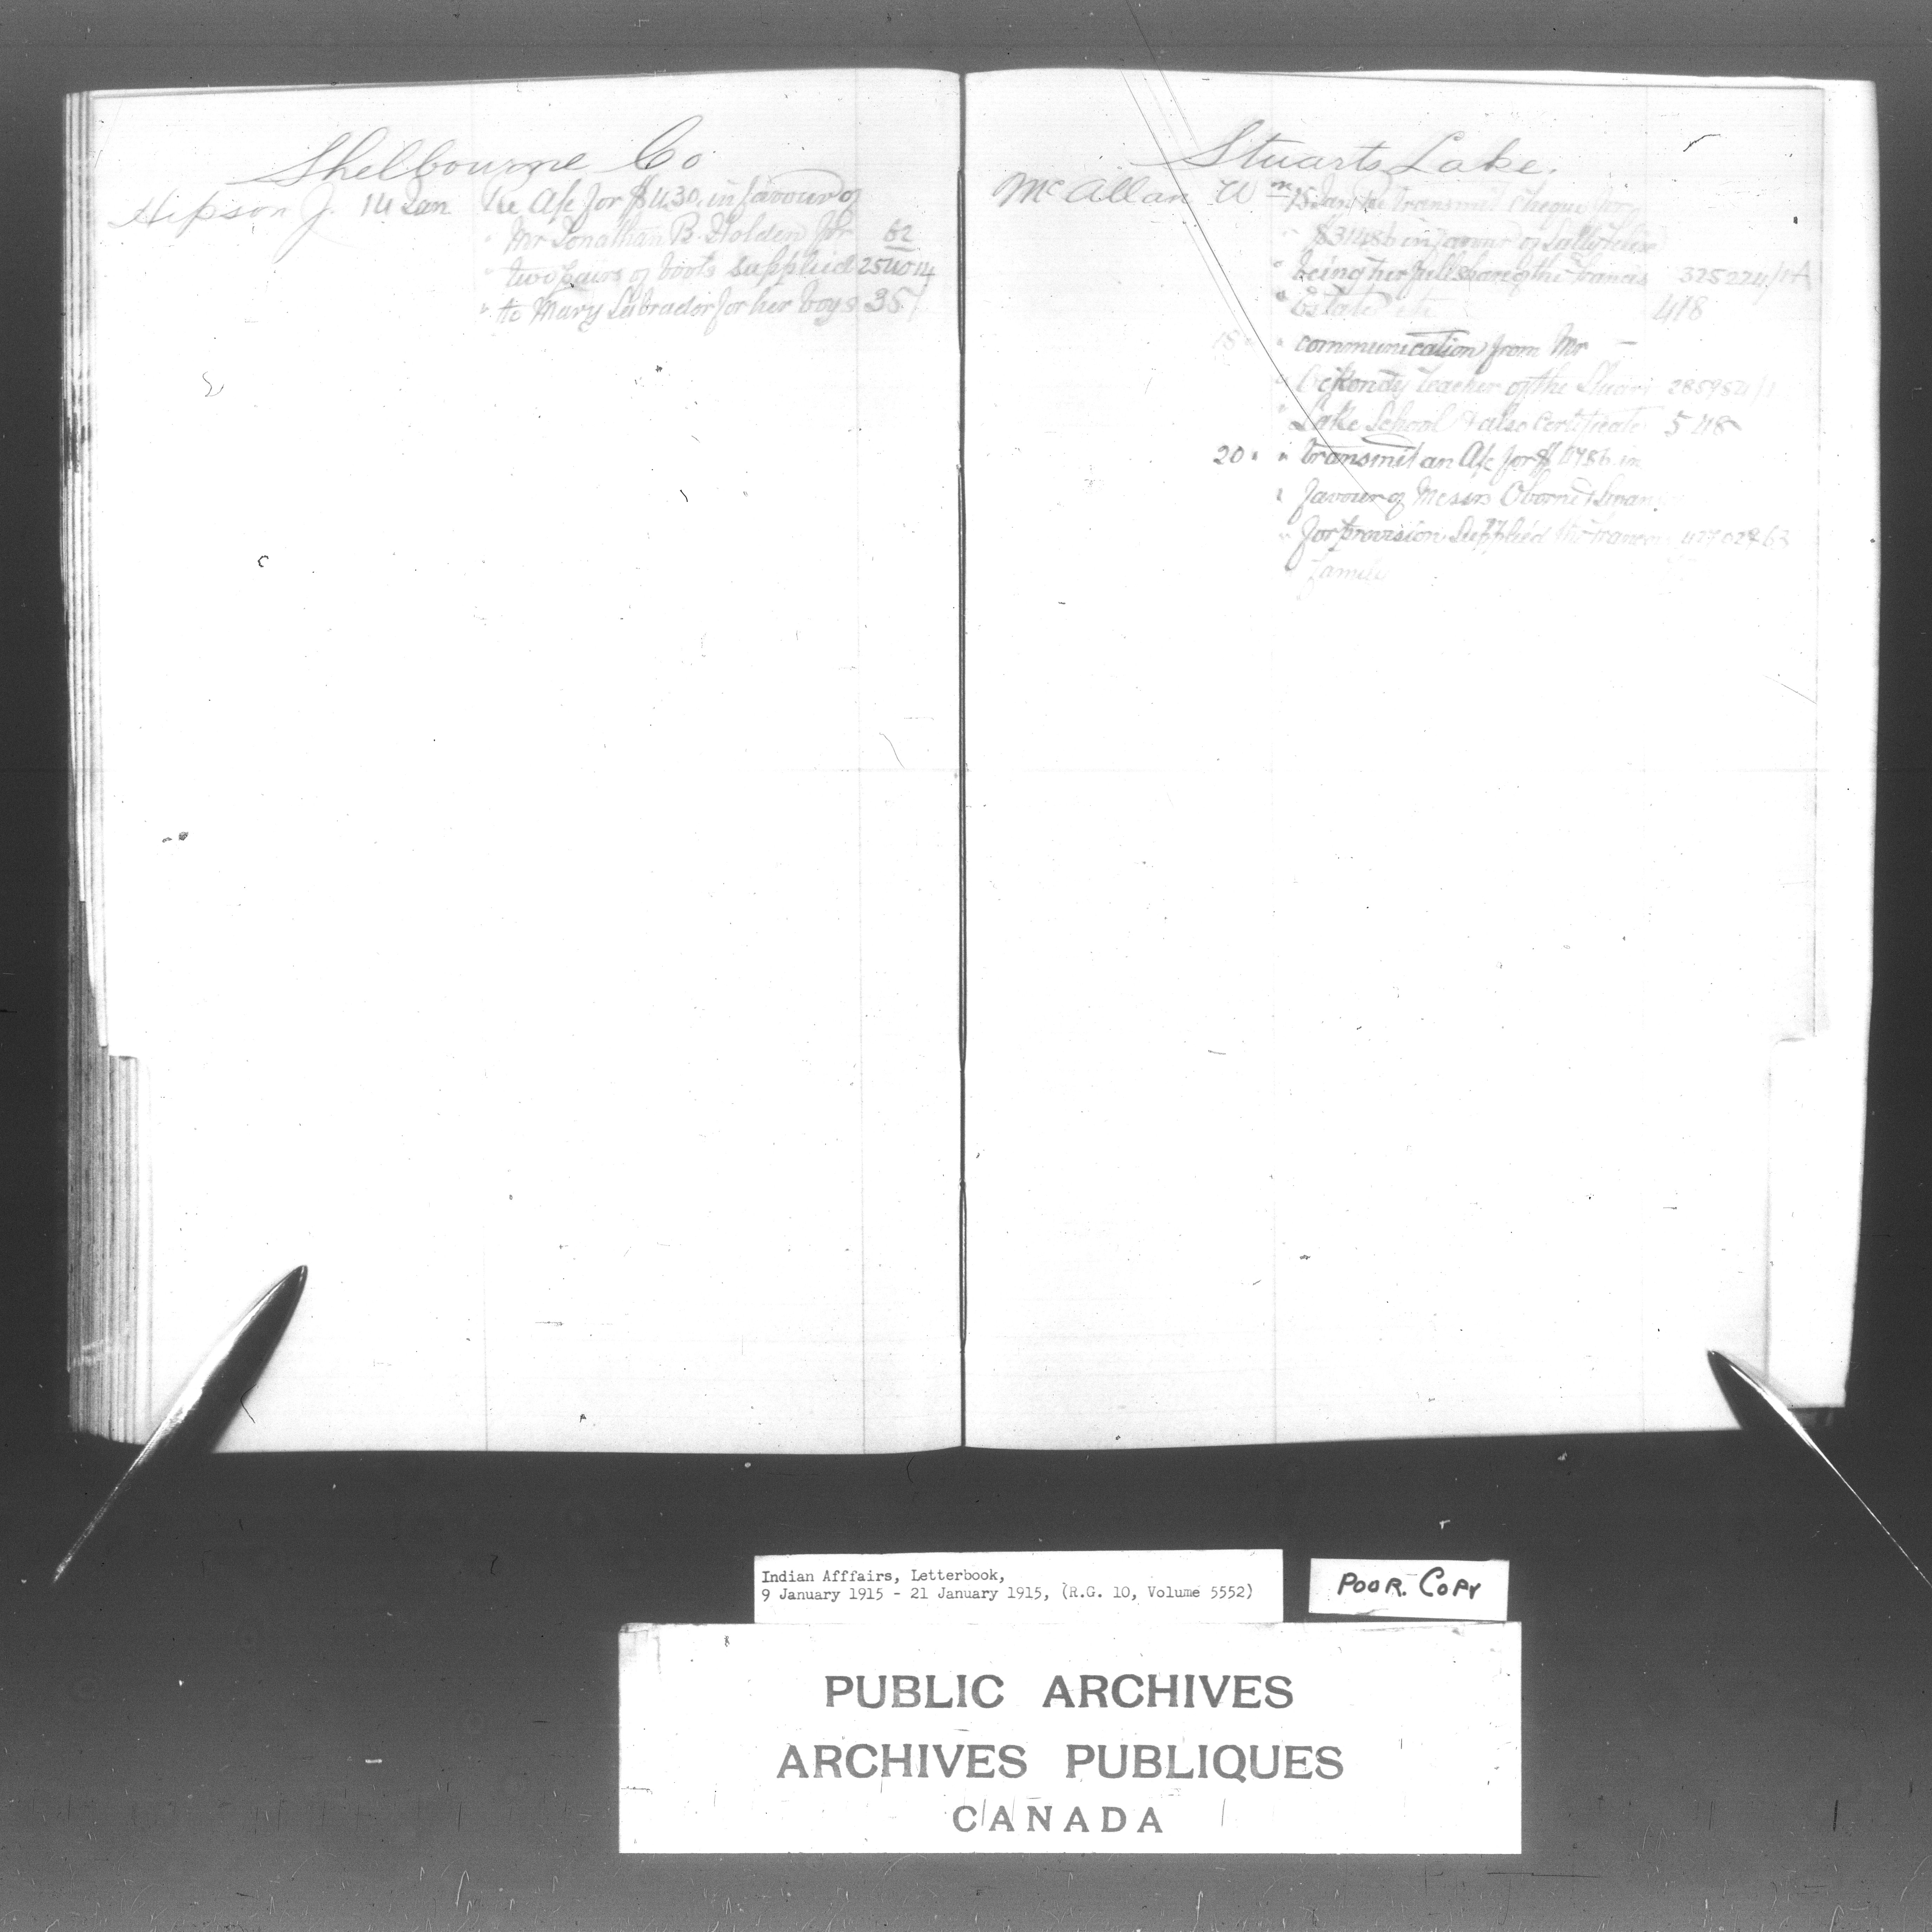 Shelbourne Co
Hipson J. 14 Jan Re A/c for $4.30 in favour of
" Mr Jonathan B. Holden for 62
" two pairs of boots supplied 254014
" to Mary Labrador for her boys 351
Stuarts Lake.
McAllan Wm 15 Jan Re transmit cheque for
" in favour of
" being her full share of the Francis 325224/1
" Estate 418
15 " " communication from Mr
" teacher of the Stuart
" Lake School & also certificate 548
20 " " transmit an A/c for $ in
" favour of Messrs
" for provision supplied the 427029 63
family
Indian Afffairs, Letterbook,
9 January 1915 - 21 January 1915, (R.G. 10, Volume 5552)
POOR. COPY
PUBLIC ARCHIVES
ARCHIVES PUBLIQUES
CANADA